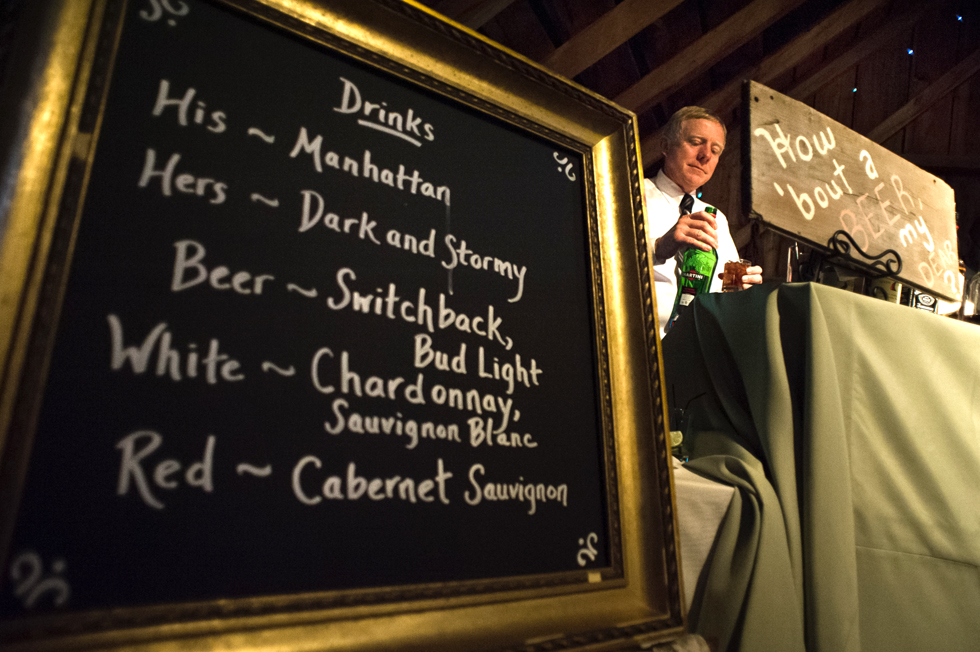 Drinks
His ~ Manhattan
Hers ~ Dark and Stormy
Beer ~ Switchback,
Bud Light
White ~ Chardonnay,
Sauvignon Blanc
Red ~ Cabernet Sauvignon
How
'bout a
BEER,
my
DEAR
MARTINI